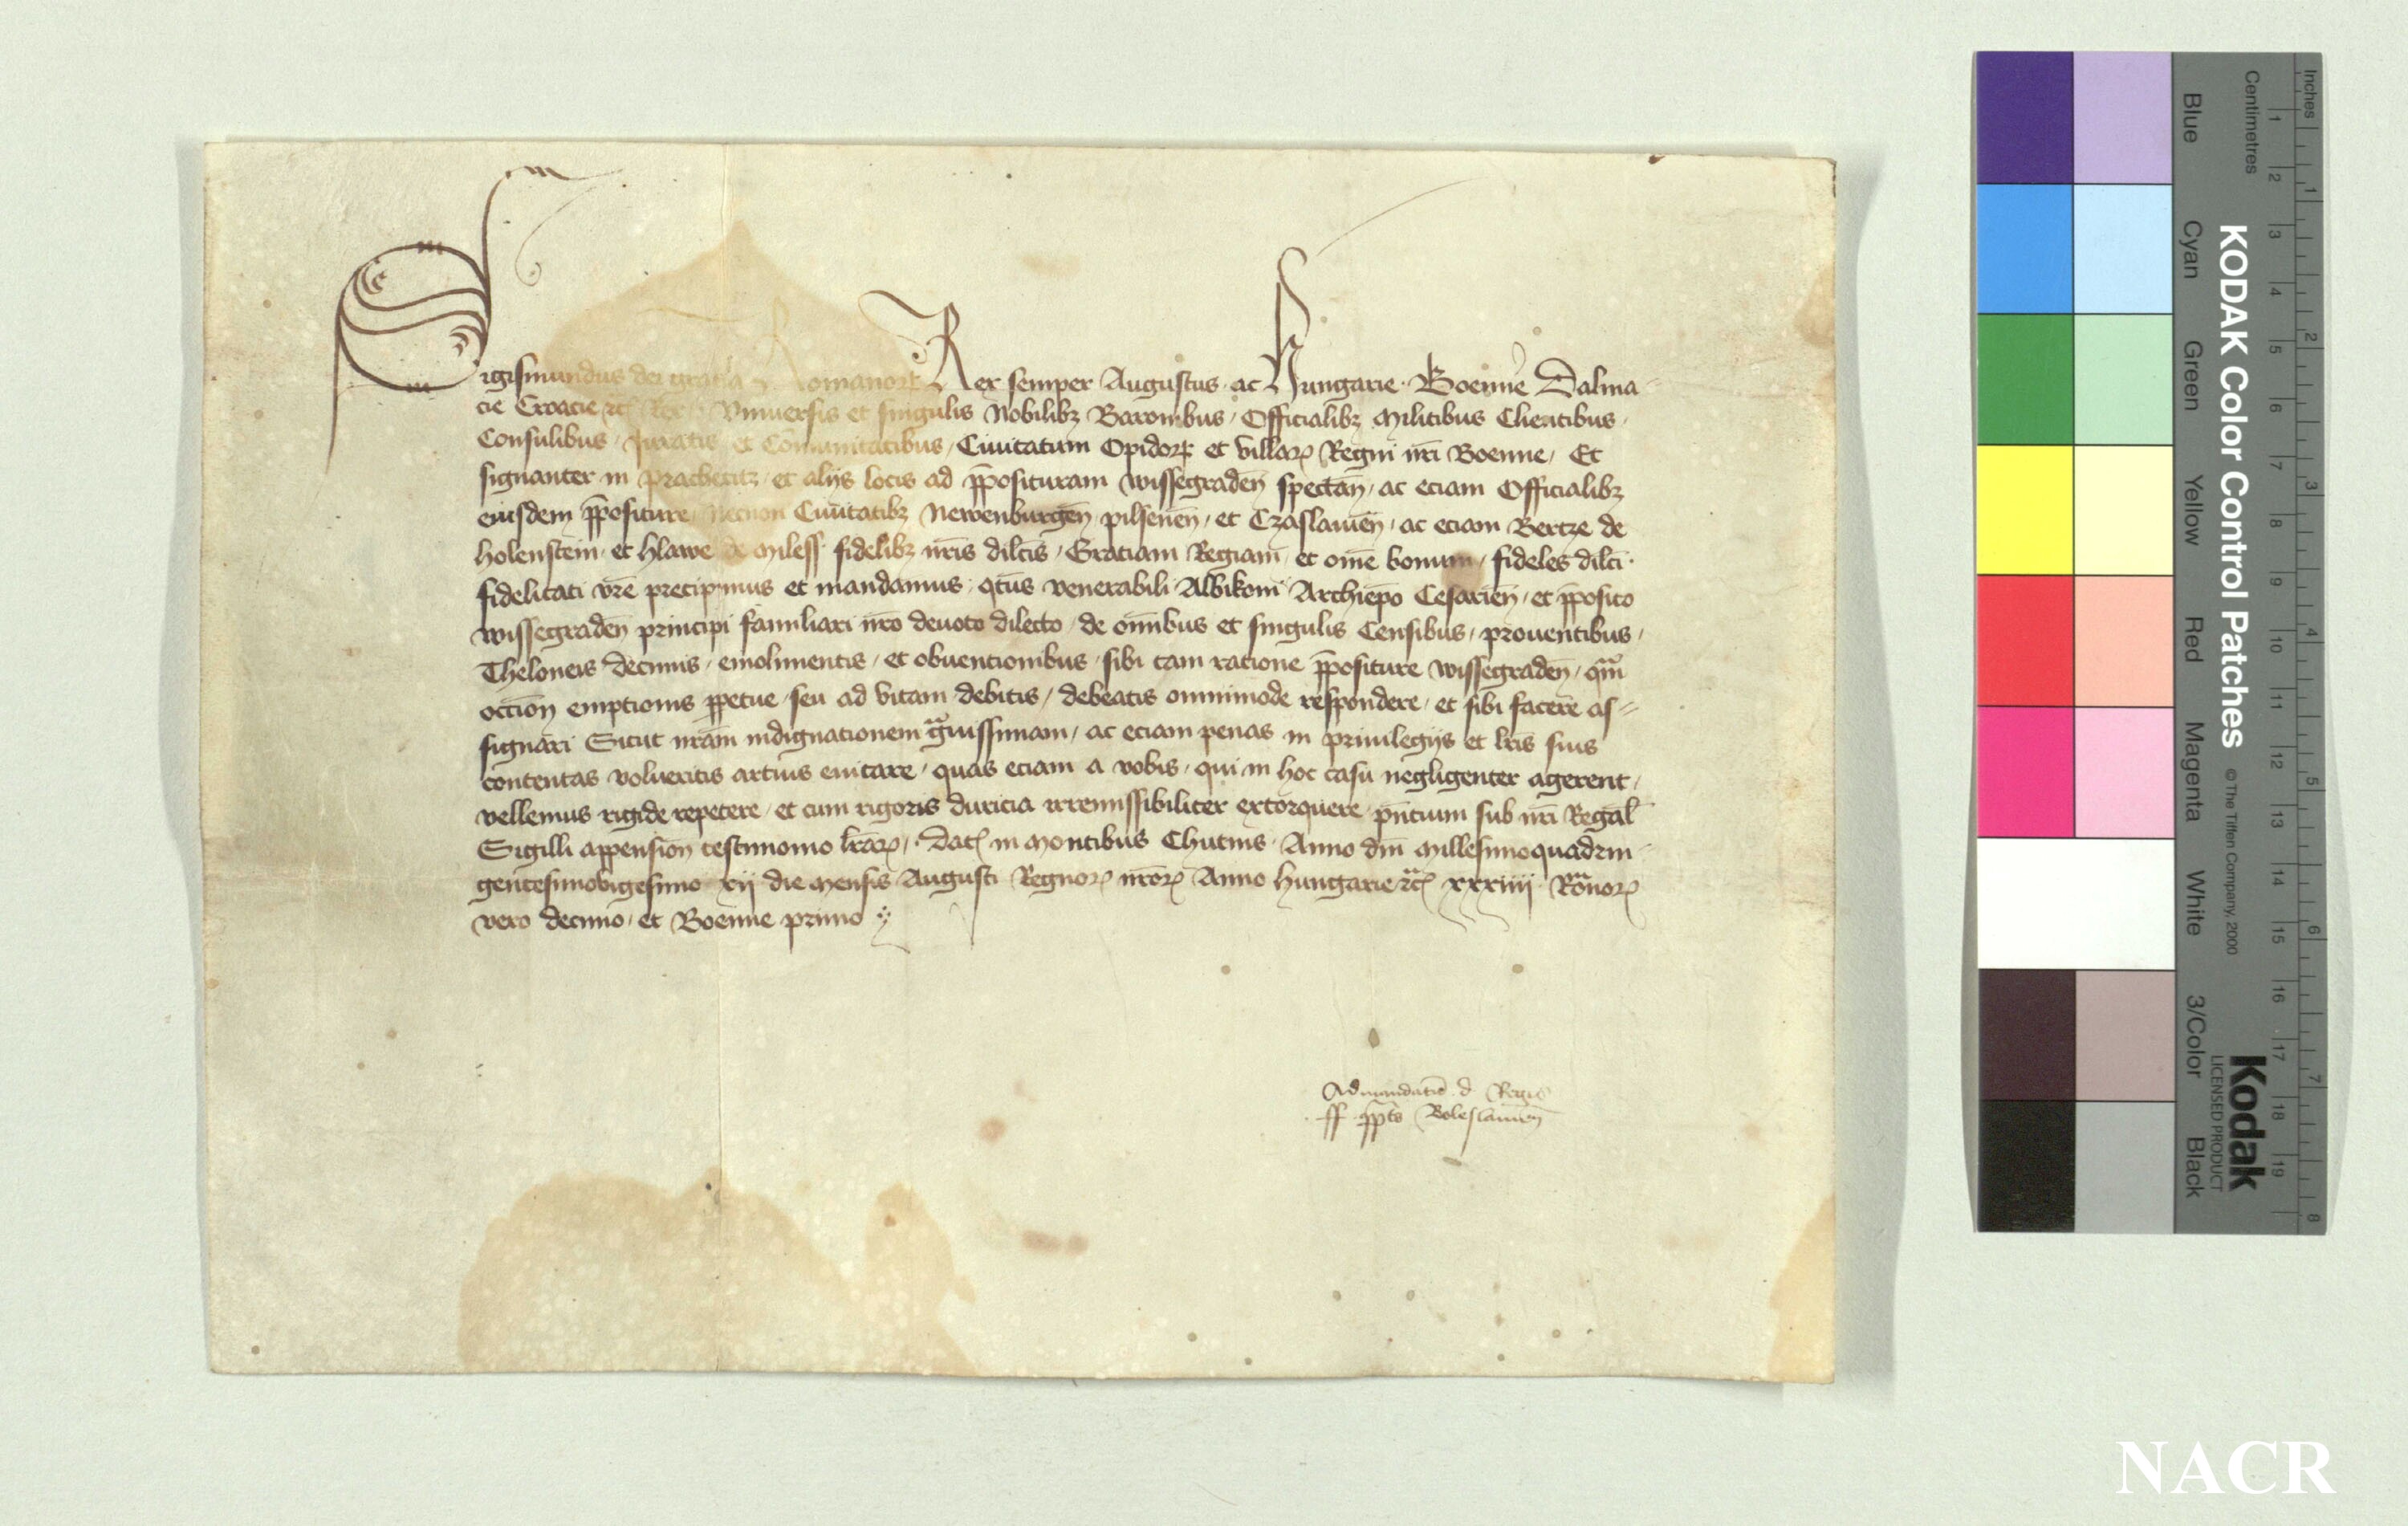 Sigismundus dei gratia Romanorꝝ Rex semper Augustus · ac Hungarie · Boemie Dalma-
cie Croacie ꝛc̄ Rex · Vniuersis et singulis Nobilibꝫ Baronibus / Officialibꝫ Militibus Clientibus ·
Consulibus / Juratis et Comunitatibus / Ciuitatum Opidorꝝ et villarꝝ Regni nr̄i Boemie / Et
signanter in Prachetitz · et alijs locis ad p̄posituram Wissegraden̄ spectan̄ / ac eciam Officialibꝫ
eiusdem p̄positure / necnon Ciuitatibꝫ Newenburgen̄ / pilsenen̄ / et Czaslauien̄ / ac eciam Bertze de
Holenstein · et Hlawe de Miless fidelibꝫ nr̄is dilc̄is / Gratiam Regiam et om̄e bonum / fideles dilc̄i ·
fidelitati vr̄e precipimus et mandamus · qt̄us venerabili Albikoni Archiep̄o Cesarien̄ / et p̄posito
Wissegraden̄ principi familiari nr̄o deuoto dilecto / de om̄ibus et singulis Censibus / prouentibus /
Theloneis decimis / emolimentis / et obuentionibus / sibi tam ratione p̄positure Wissegraden̄ / qm̄
occ̄ion̄ emptionis ꝑpetue / seu ad vitam debitis / debeatis omnimode respondere / et sibi facere as-
signari Sicut nr̄am indignationem g̃uissimam / ac eciam penas in priuilegijs et lr̄is suis
contentas volueritis artius euitare / quas eciam a vobis / qui in hoc casu negligenter agerent /
vellemus rigide repetere / et cum rigoris duricia irremissibiliter extorquere / pn̄tium sub nr̄i Regal̄
Sigilli appension̄ testimonio lr̄arꝝ / Dat̄ in Montibus Chutnis · Anno dn̄i Millesimoquadrin
gentesimovigesimo xij die Mensis Augusti Regnorꝝ nr̄orꝝ Anno Hungarie ꝛc̄ xxxiiij Ro̅norꝝ
vero decimo / et Boemie primo
Ad mandatū d Regis
ff p̄pts Boleslauien̄
KODAK Color Control Patches
© The Tiffen Company, 2000
Kodak
LICENSED PRODUCT
Inches 1 2 3 4 5 6 7 8
Centimetres 1 2 3 4 5 6 7 8 9 10 11 12 13 14 15 16 17 18 19
Blue Cyan Green Yellow Red Magenta White 3/Color Black
NACR